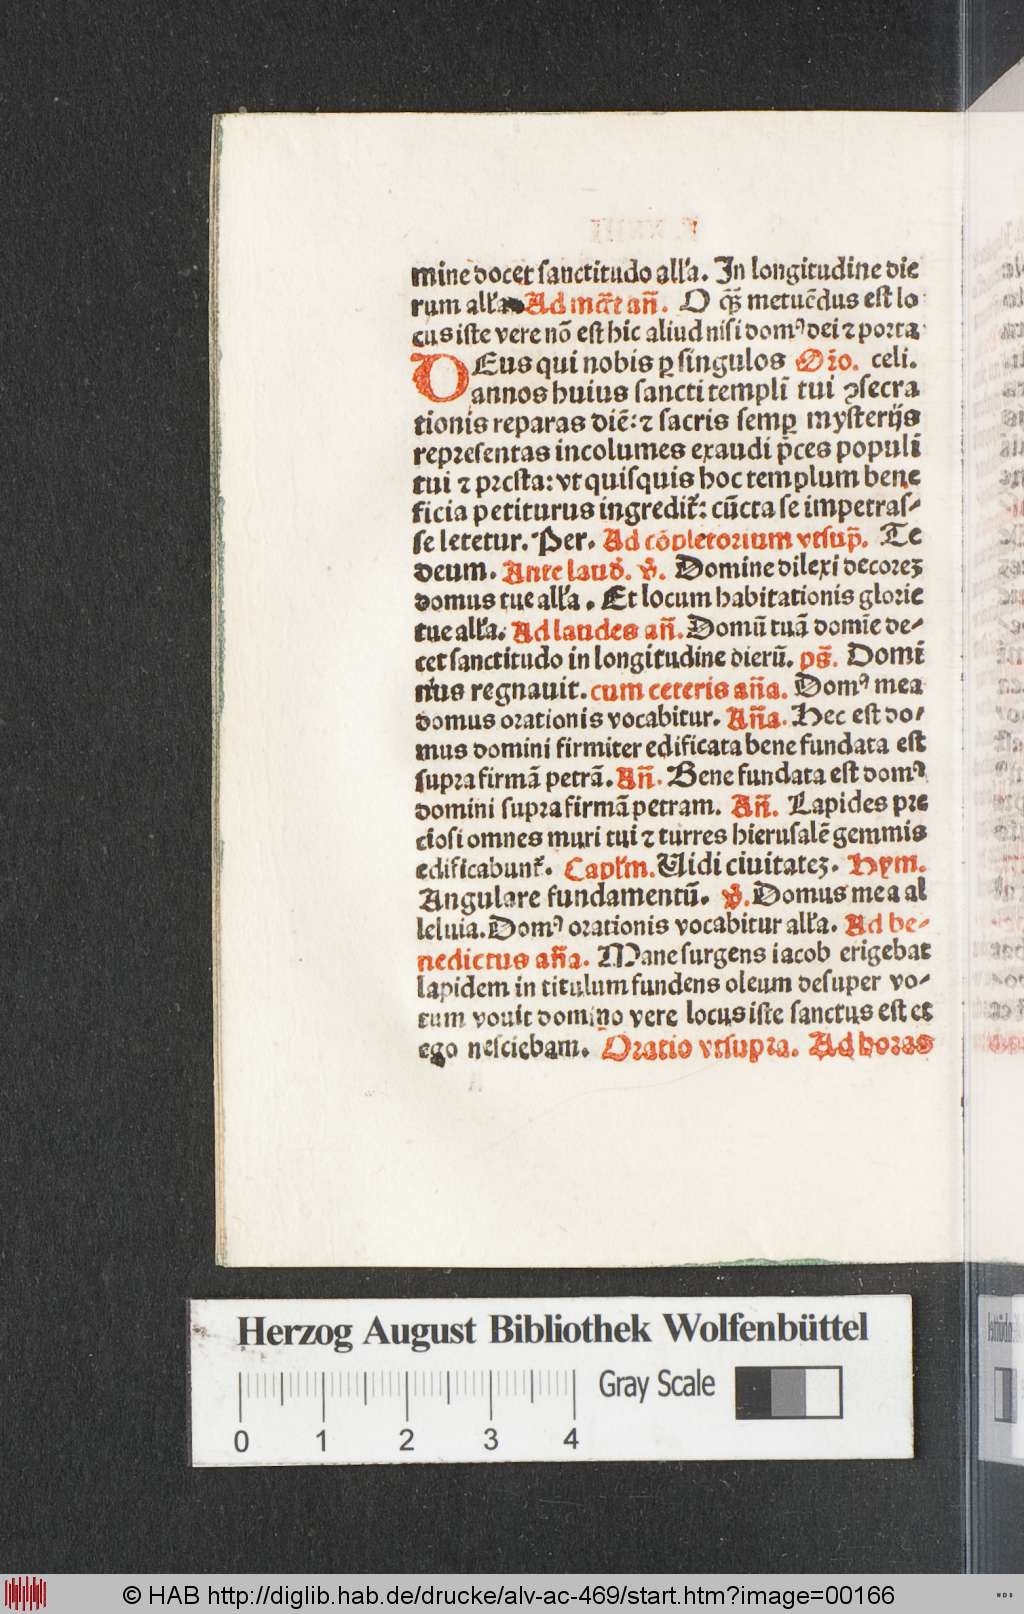 mine docet sanctitudo all'a. In longitudine die
rum all'a Ad mc̄t an̄. O qȝ̄ metuēdus est lo
cus iste vere nō est hic aliud nisi domꝰ dei ⁊ porta
DEus qui nobis ꝑ singulos Orō. celi.
annos huius sancti templi tui ꝯsecra
tionis reparas diē: ⁊ sacris semꝑ mysterijs
representas incolumes exaudi p̄ces populi
tui ⁊ presta: vt quisquis hoc templum bene
ficia petiturus ingredit᷑: cūcta se impetras⸗
se letetur. Per. Ad cōpletorium vtsup̄. Te
deum. Ante laud. v̄. Domine dilexi decoreȝ
domus tue all'a. Et locum habitationis glorie
tue all'a. Ad laudes an̄. Domū tuā domīe de⸗
cet sanctitudo in longitudine dierū. ps̄. Domi
nus regnauit. cum ceteris an̄a. Domꝰ mea
domus orationis vocabitur. An̄a. Hec est do⸗
mus domini firmiter edificata bene fundata est
supra firmā petrā. An̄. Bene fundata est domꝰ
domini supra firmā petram. An̄. Lapides pre
ciosi omnes muri tui ⁊ turres hierusalē gemmis
edificabunt᷑. Capl'm. Uidi ciuitateȝ. Hym.
Angulare fundamentū. v̄. Domus mea al
leluia. Domꝰ orationis vocabitur all'a. Ad be⸗
nedictus an̄a. Mane surgens iacob erigebat
lapidem in titulum fundens oleum desuper vo⸗
tum vouit domino vere locus iste sanctus est et
ego nesciebam. Oratio vtsupra. Ad horas
Herzog August Bibliothek Wolfenbüttel
Gray Scale
0 1 2 3 4
© HAB http://diglib.hab.de/drucke/alv-ac-469/start.htm?image=00166